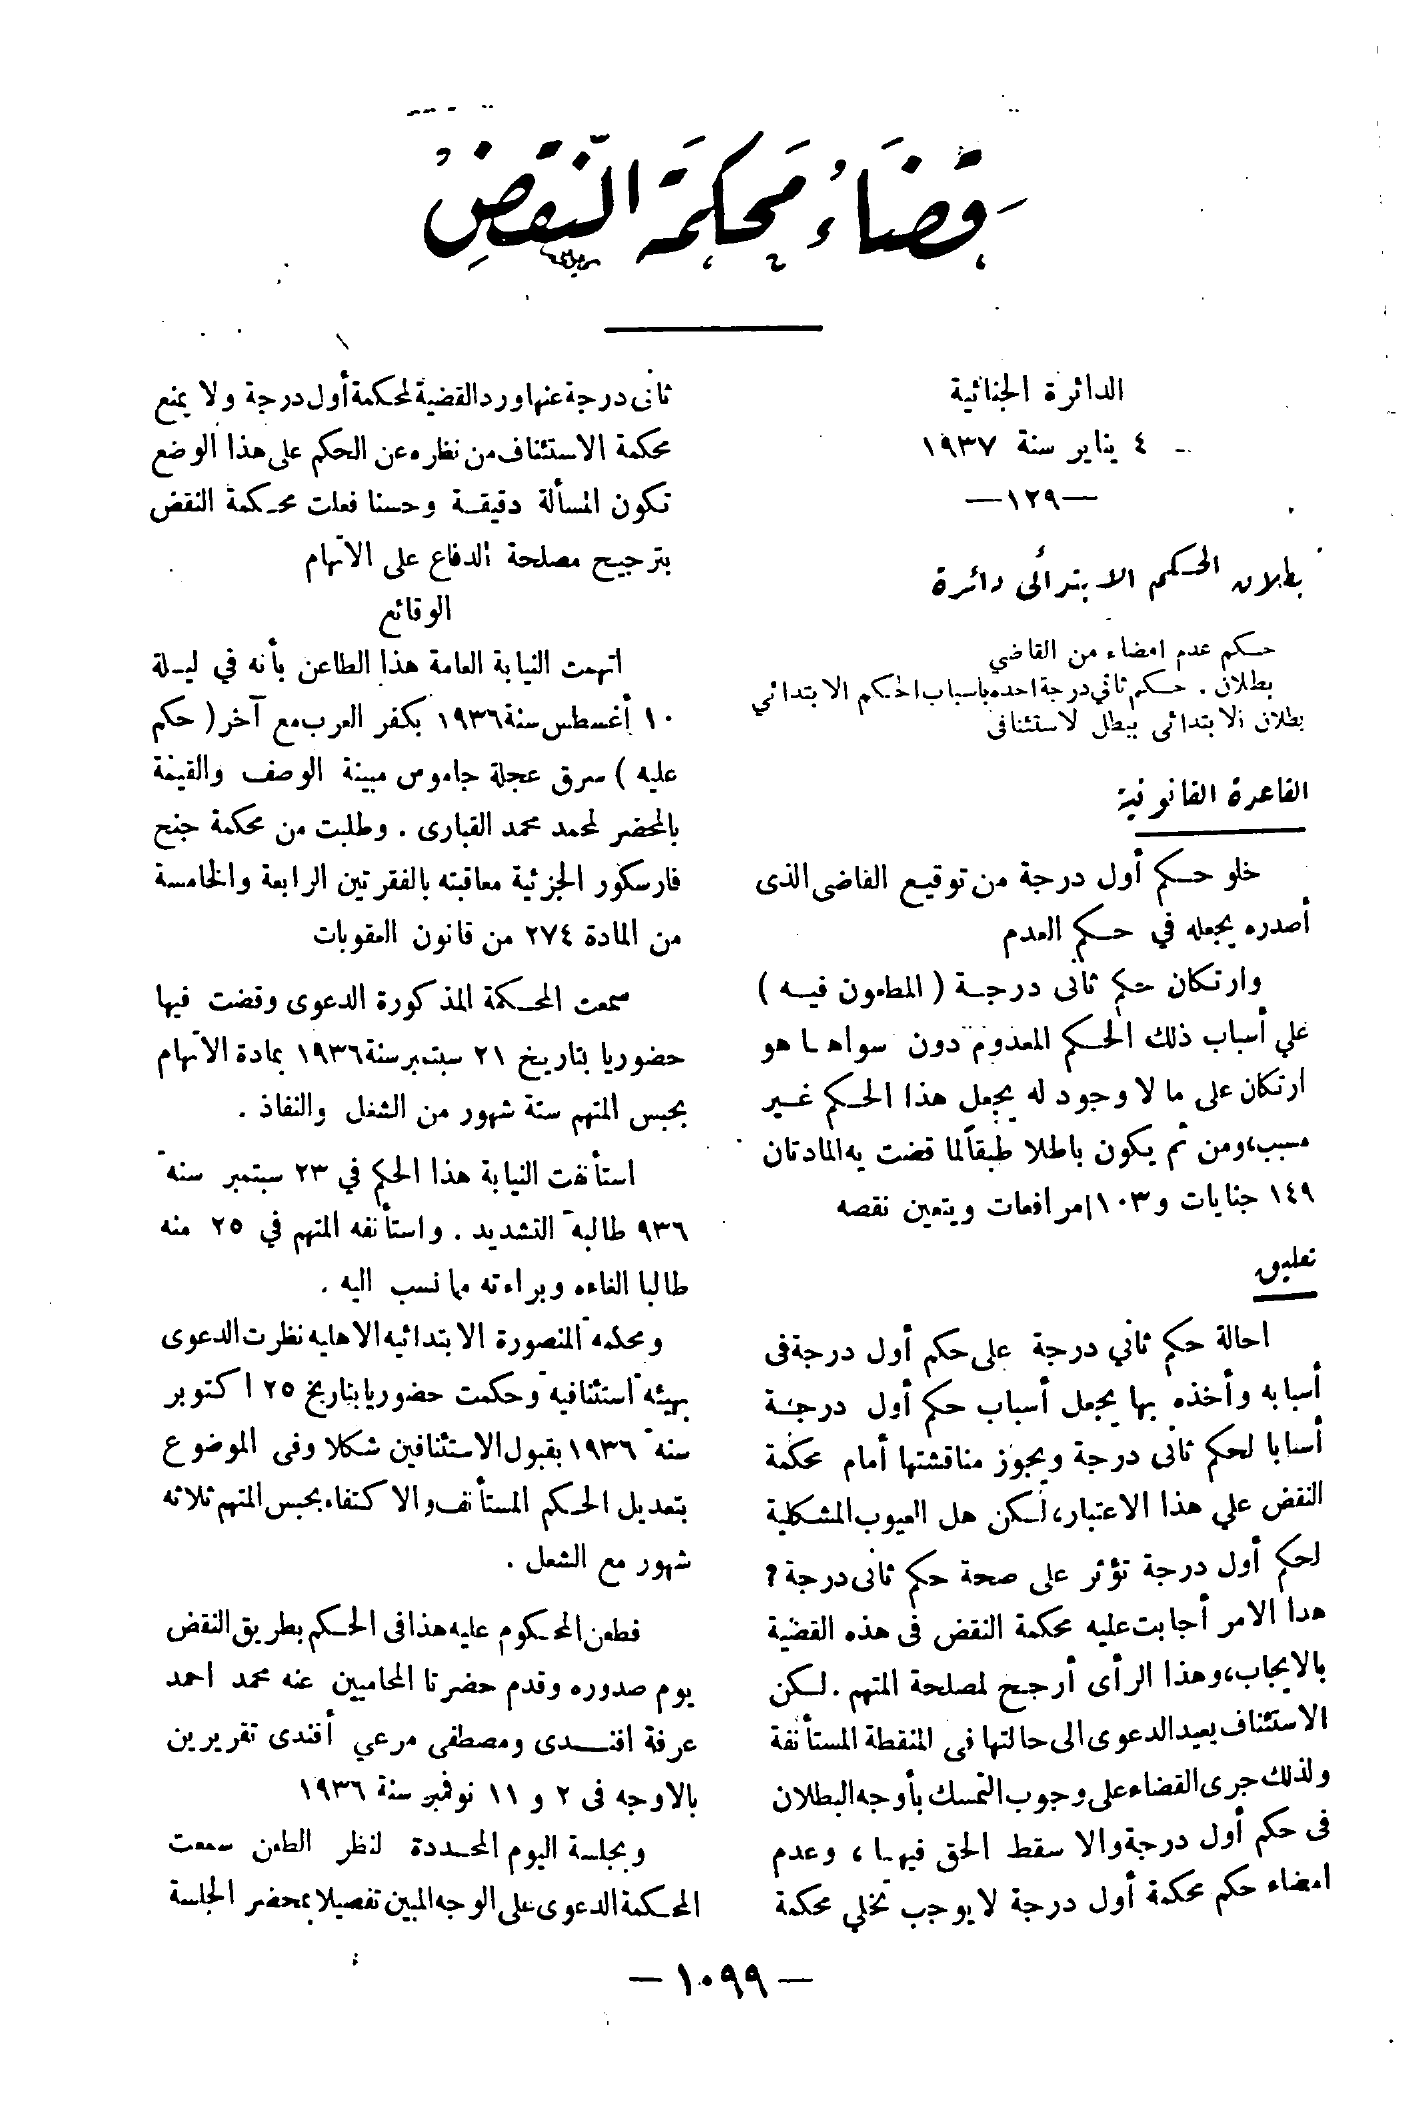 قضاء محكمة النقض
الدائرة الجنائية
٤ يناير سنة ١٩٣٧
— ١٢٩ —
بطلان الحكم الابتدائى دائرة
حكم عدم امضاء من القاضي
بطلان . حكم ثاني درجة اخده باسباب الحكم الابتدائي
بطلان الابتدائى يبطل لاستئنافى
القاعدة القانونية
خلو حكم أول درجة من توقيع القاضى الذى
أصدره يجعله في حكم العدم
وارتكان حكم ثانى درجة ( المطعون فيه )
علي أسباب ذلك الحكم المعدوم دون سواها هو
ارتكان على ما لا وجود له يجعل هذا الحكم غير
مسبب، ومن ثم يكون باطلا طبقاً لما قضت به المادتان
١٤٩ جنايات و ١٠٣ مرافعات ويتعين نقضه
تعليق
احالة حكم ثاني درجة على حكم أول درجة فى
أسبابه وأخذه بها يجعل أسباب حكم أول درجة
أسبابا لحكم ثانى درجة ويجوز مناقشتها أمام محكمة
النقض علي هذا الاعتبار، لكن هل العيوب المشكلية
لحكم أول درجة تؤثر على صحة حكم ثانى درجة ؟
هدا الامر أجابت عليه محكمة النقض فى هذه القضية
بالايجاب، وهذا الرأى أرجح لمصلحة المتهم . لكن
الاستئناف يعيد الدعوى الى حالتها فى المنقطة المستأنفة
ولذلك جرى القضاء على وجوب التمسك بأوجه البطلان
فى حكم أول درجة والا سقط الحق فيها ، وعدم
امضاء حكم محكمة أول درجة لا يوجب تخلي محكمة
ثانى درجة عنها ورد القضية لمحكمة أول درجة ولا يمنع
محكمة الاستئناف من نظره عن الحكم على هذا الوضع
تكون المسألة دقيقة وحسنا فعلت محكمة النقض
بترجيح مصلحة الدفاع على الاتهام
الوقائع
اتهمت النيابة العامة هذا الطاعن بأنه في ليلة
١٠ أغسطس سنة ١٩٣٦ بكفر العرب مع آخر ( حكم
عليه ) سرق عجلة جاموس مبينة الوصف والقيمة
بالمحضر لمحمد محمد القبارى . وطلبت من محكمة جنح
فارسكور الجزئية معاقبته بالفقرتين الرابعة والخامسة
من المادة ٢٧٤ من قانون العقوبات
سمعت المحكمة المذكورة الدعوى وقضت فيها
حضوريا بتاريخ ٢١ سبتمبر سنة ١٩٣٦ بمادة الاتهام
بحبس المتهم ستة شهور من الشغل والنفاذ .
استأنفت النيابة هذا الحكم في ٢٣ سبتمبر سنه
٩٣٦ طالبة التشديد . واستأنفه المتهم في ٢٥ منه
طالبا الغاءه وبراءته مما نسب اليه .
ومحكمة المنصورة الابتدائيه الاهليه نظرت الدعوى
بهيئه استئنافيه وحكمت حضوريا بتاريخ ٢٥ اكتوبر
سنه ١٩٣٦ بقبول الاستئنافين شكلا وفى الموضوع
بتعديل الحكم المستأنف والاكتفاء بحبس المتهم ثلاثه
شهور مع الشعل .
فطعن المحكوم عليه هذا فى الحكم بطريق النقض
يوم صدوره وقدم حضرتا المحاميين عنه محمد احمد
عرفة افندى ومصطفى مرعي أفندى تقريرين
بالاوجه فى ٢ و ١١ نوفمبر سنة ١٩٣٦
وبجلسة اليوم المحددة لنظر الطعن سمعت
المحكمة الدعوى على الوجه المبين تفصيلا بمحضر الجلسة
— ١٠٩٩ —